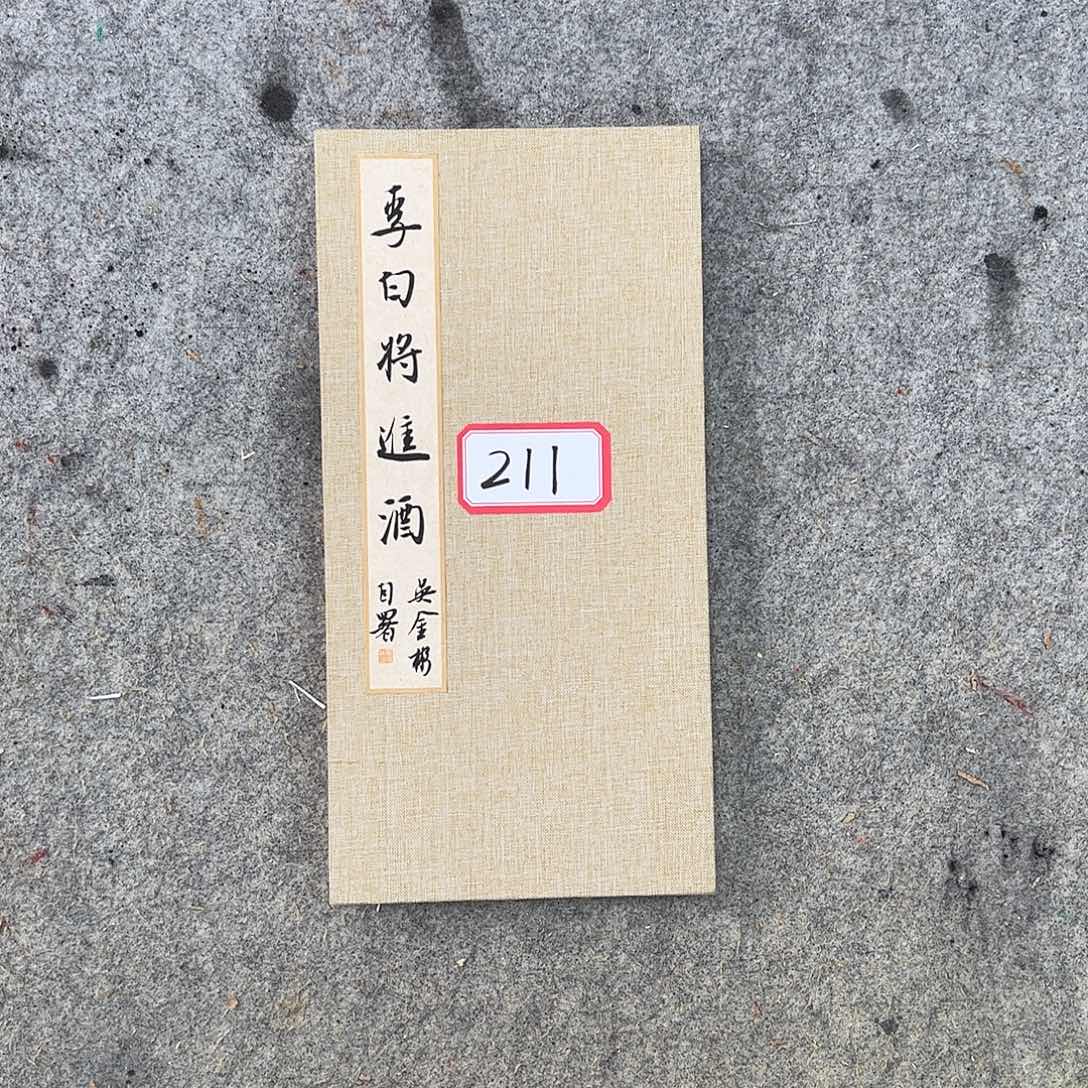 李白将進酒
吳金彬
自署
211